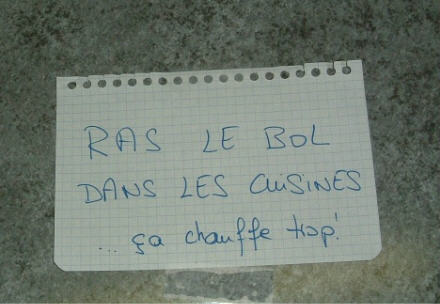 RAS LE BOL
DANS LES CUISINES
... ça chauffe trop!